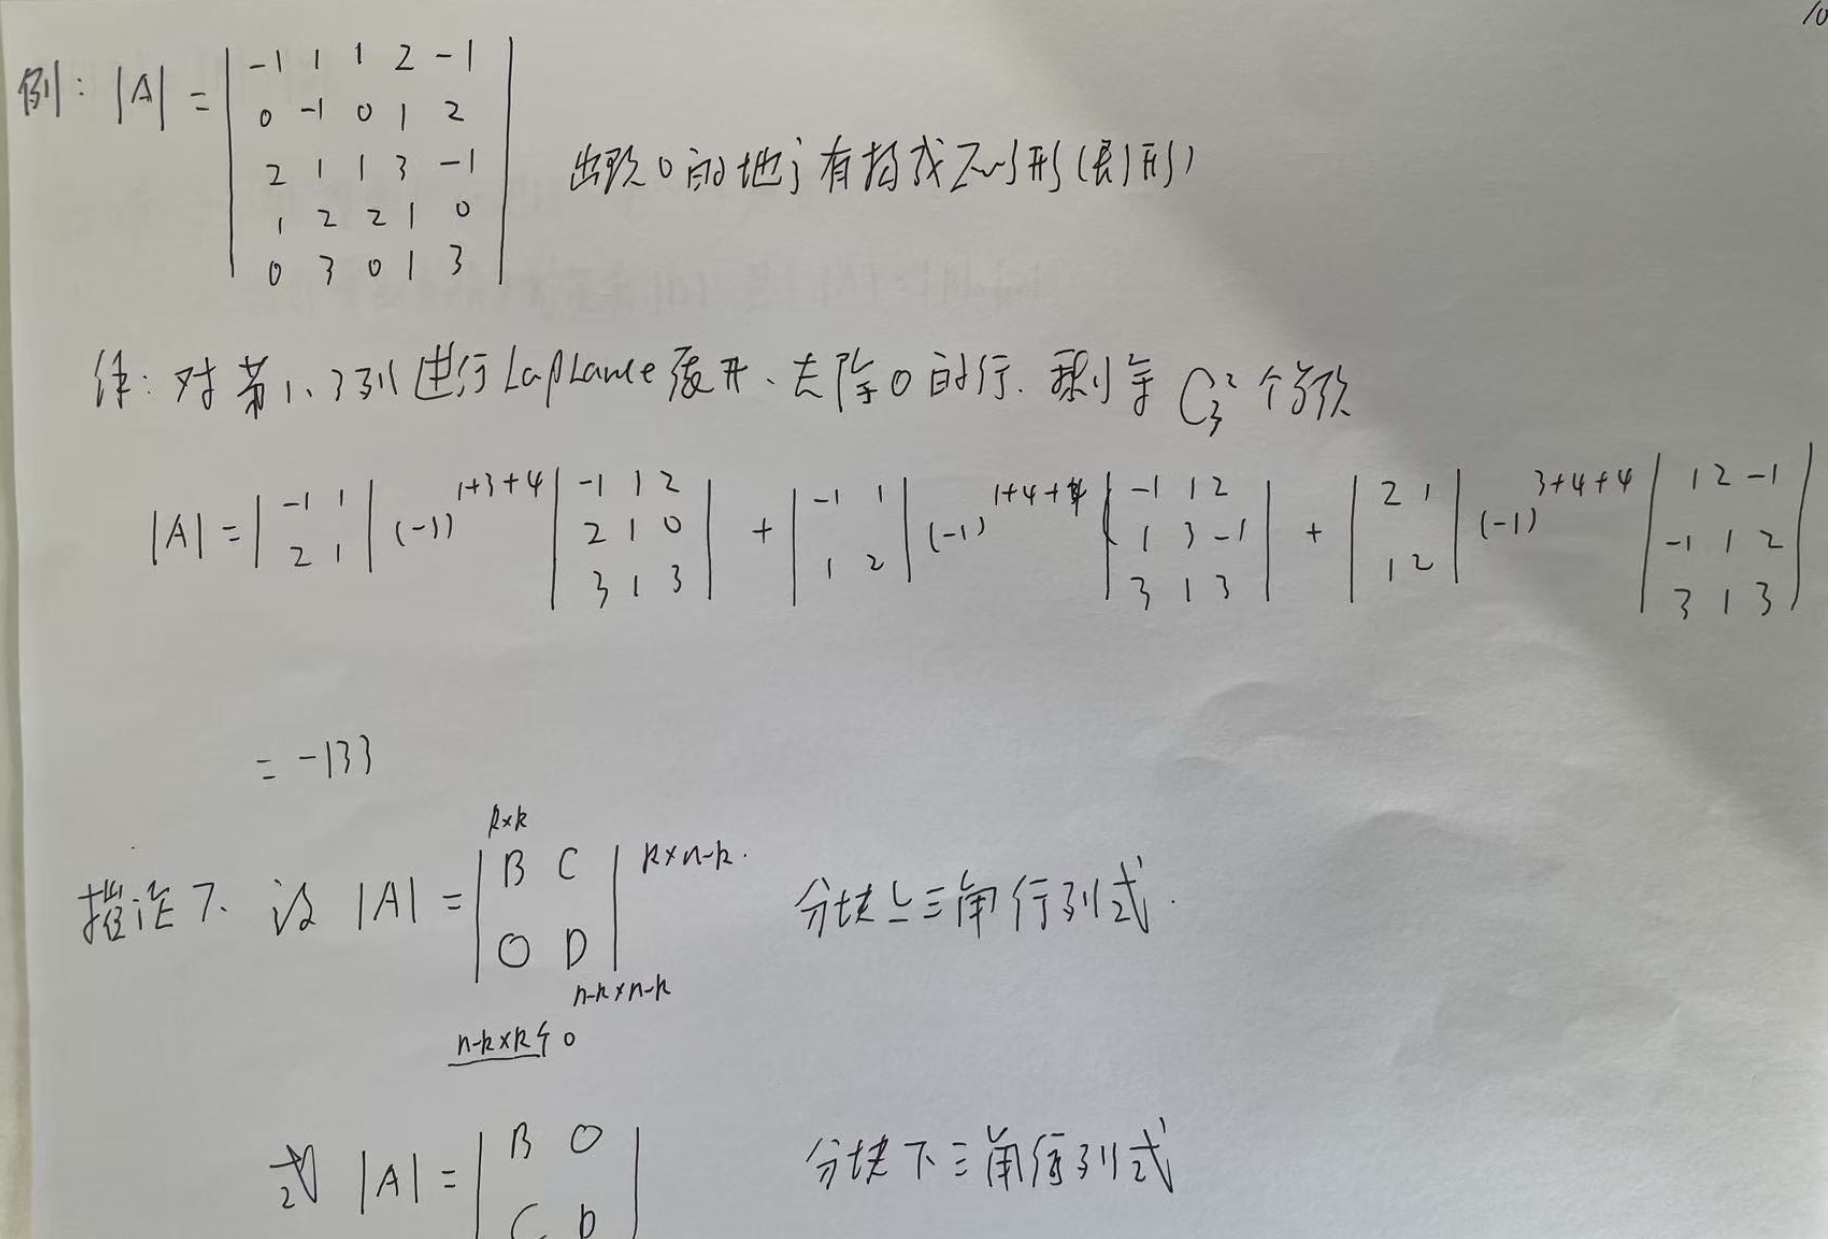 10
例: |A| = | -1 1 1 2 -1 |
0 -1 0 1 2
2 1 1 3 -1
1 2 2 1 0
0 3 0 1 3
出现0的地方有构成 形(长方形)
注: 对第1、3列进行Laplance展开、去除0的行. 剩余 C₃² 个子
|A| = | -1 1 ; 2 1 | (-1)^{1+3+4} | -1 1 2 ; 2 1 0 ; 3 1 3 | + | -1 1 ; 1 2 | (-1)^{1+4+4} | -1 1 2 ; 1 3 -1 ; 3 1 3 | + | 2 1 ; 1 2 | (-1)^{3+4+4} | 1 2 -1 ; -1 1 2 ; 3 1 3 |
= -133
k×k
推论7. 设 |A| = | B C ; O D | k×n-k. 分块上三角行列式.
n-k×n-k
n-k×k个0
或 |A| = | B O ; C D | 分块下三角行列式